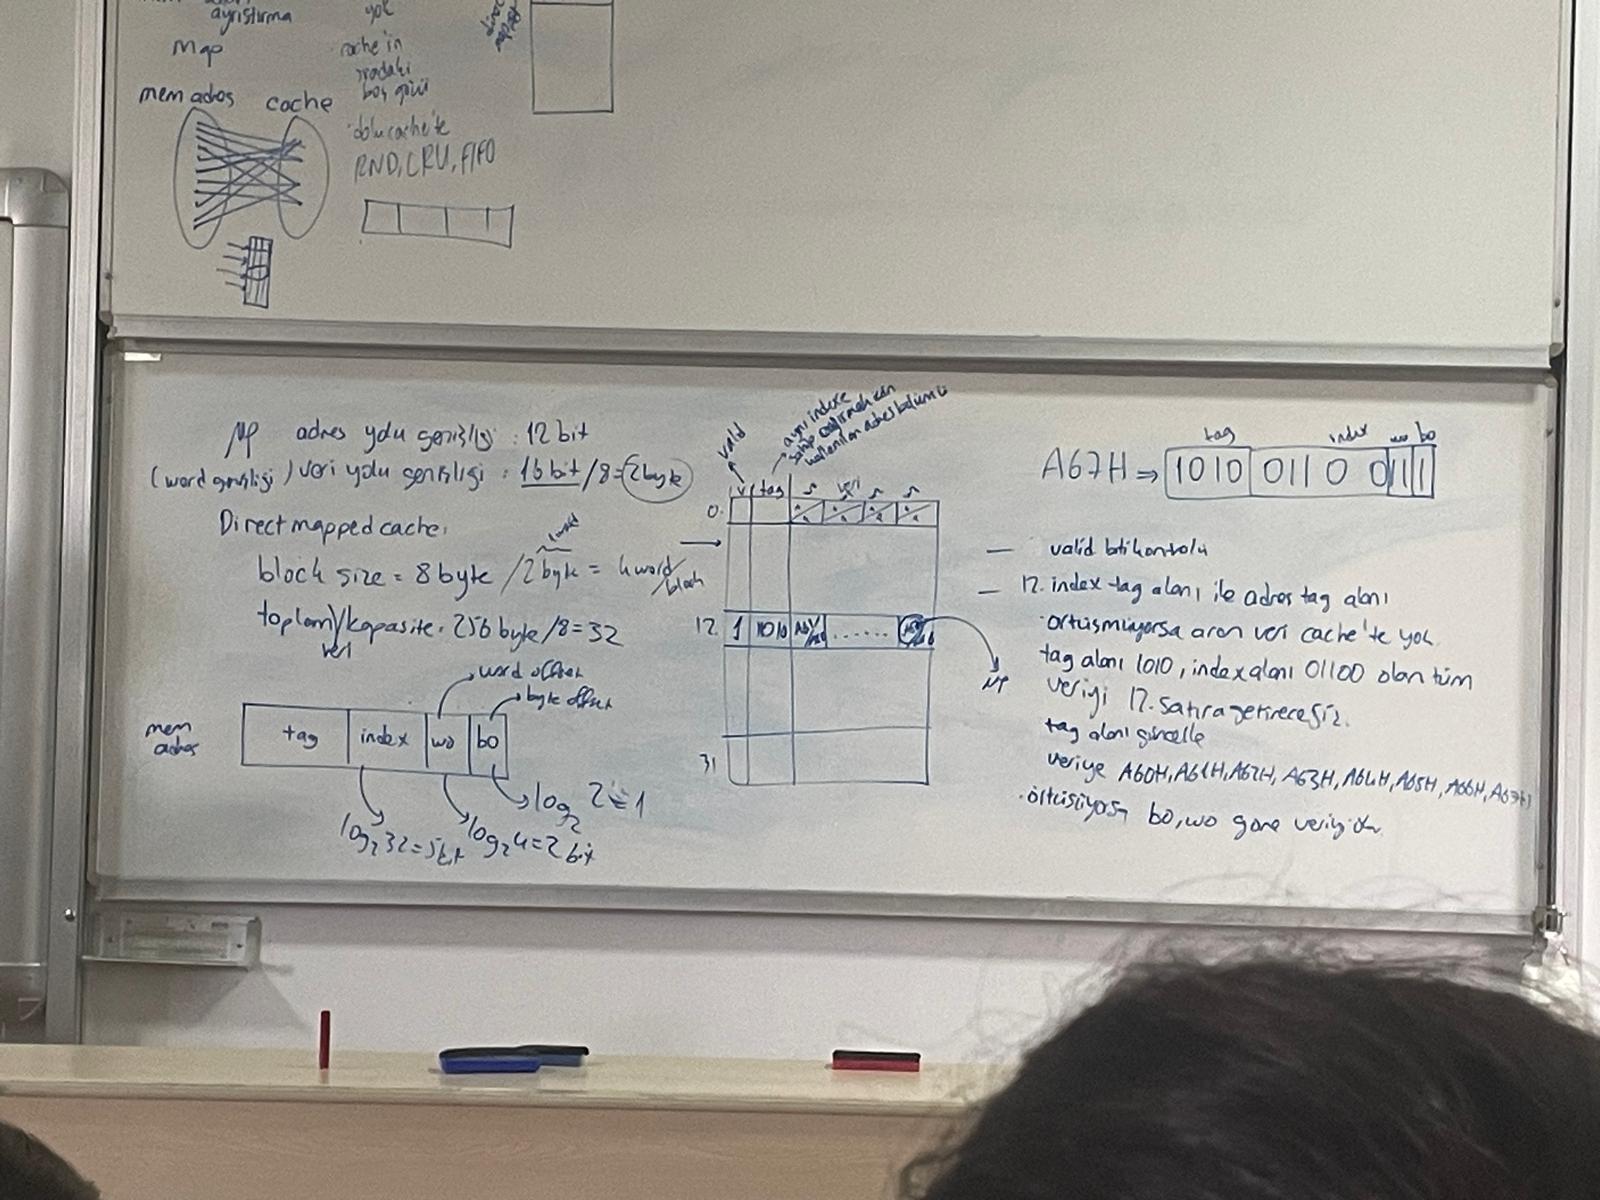 ayrıştırma
yok
Map
cache'in
sıradaki
boş gözü
mem adres cache
dolu cache'te
RND, LRU, FIFO
μP adres yolu genişliği : 12 bit
(word genişliği) veri yolu genişliği : 16 bit /8 = 2 byte
Direct mapped cache:
1 word
block size = 8 byte / 2 byte = 4 word/block
toplam kapasite : 256 byte /8 = 32
veri
word offset
byte offset
mem adres
tag index wo bo
log₂32 = 5 bit log₂4 = 2 bit log₂2 = 1
valid
aynı indexe
sahip
kullanılan adres bölümü
v tag veri
0.
12. 1 1010 ......
31
μP
tag index wo bo
A67H ⇒ 1010 011 0 0 11 1
— valid biti kontrolü
— 12. index tag alanı ile adres tag alanı
örtüşmüyorsa aran veri cache'te yok.
tag alanı 1010, index alanı 01100 olan tüm
veriyi 12. satıra getireceğiz.
tag alanı güncelle
veriye A60H, A61H, A62H, A63H, A64H, A65H, A66H, A67H
örtüşüyorsa bo, wo göre veriyi